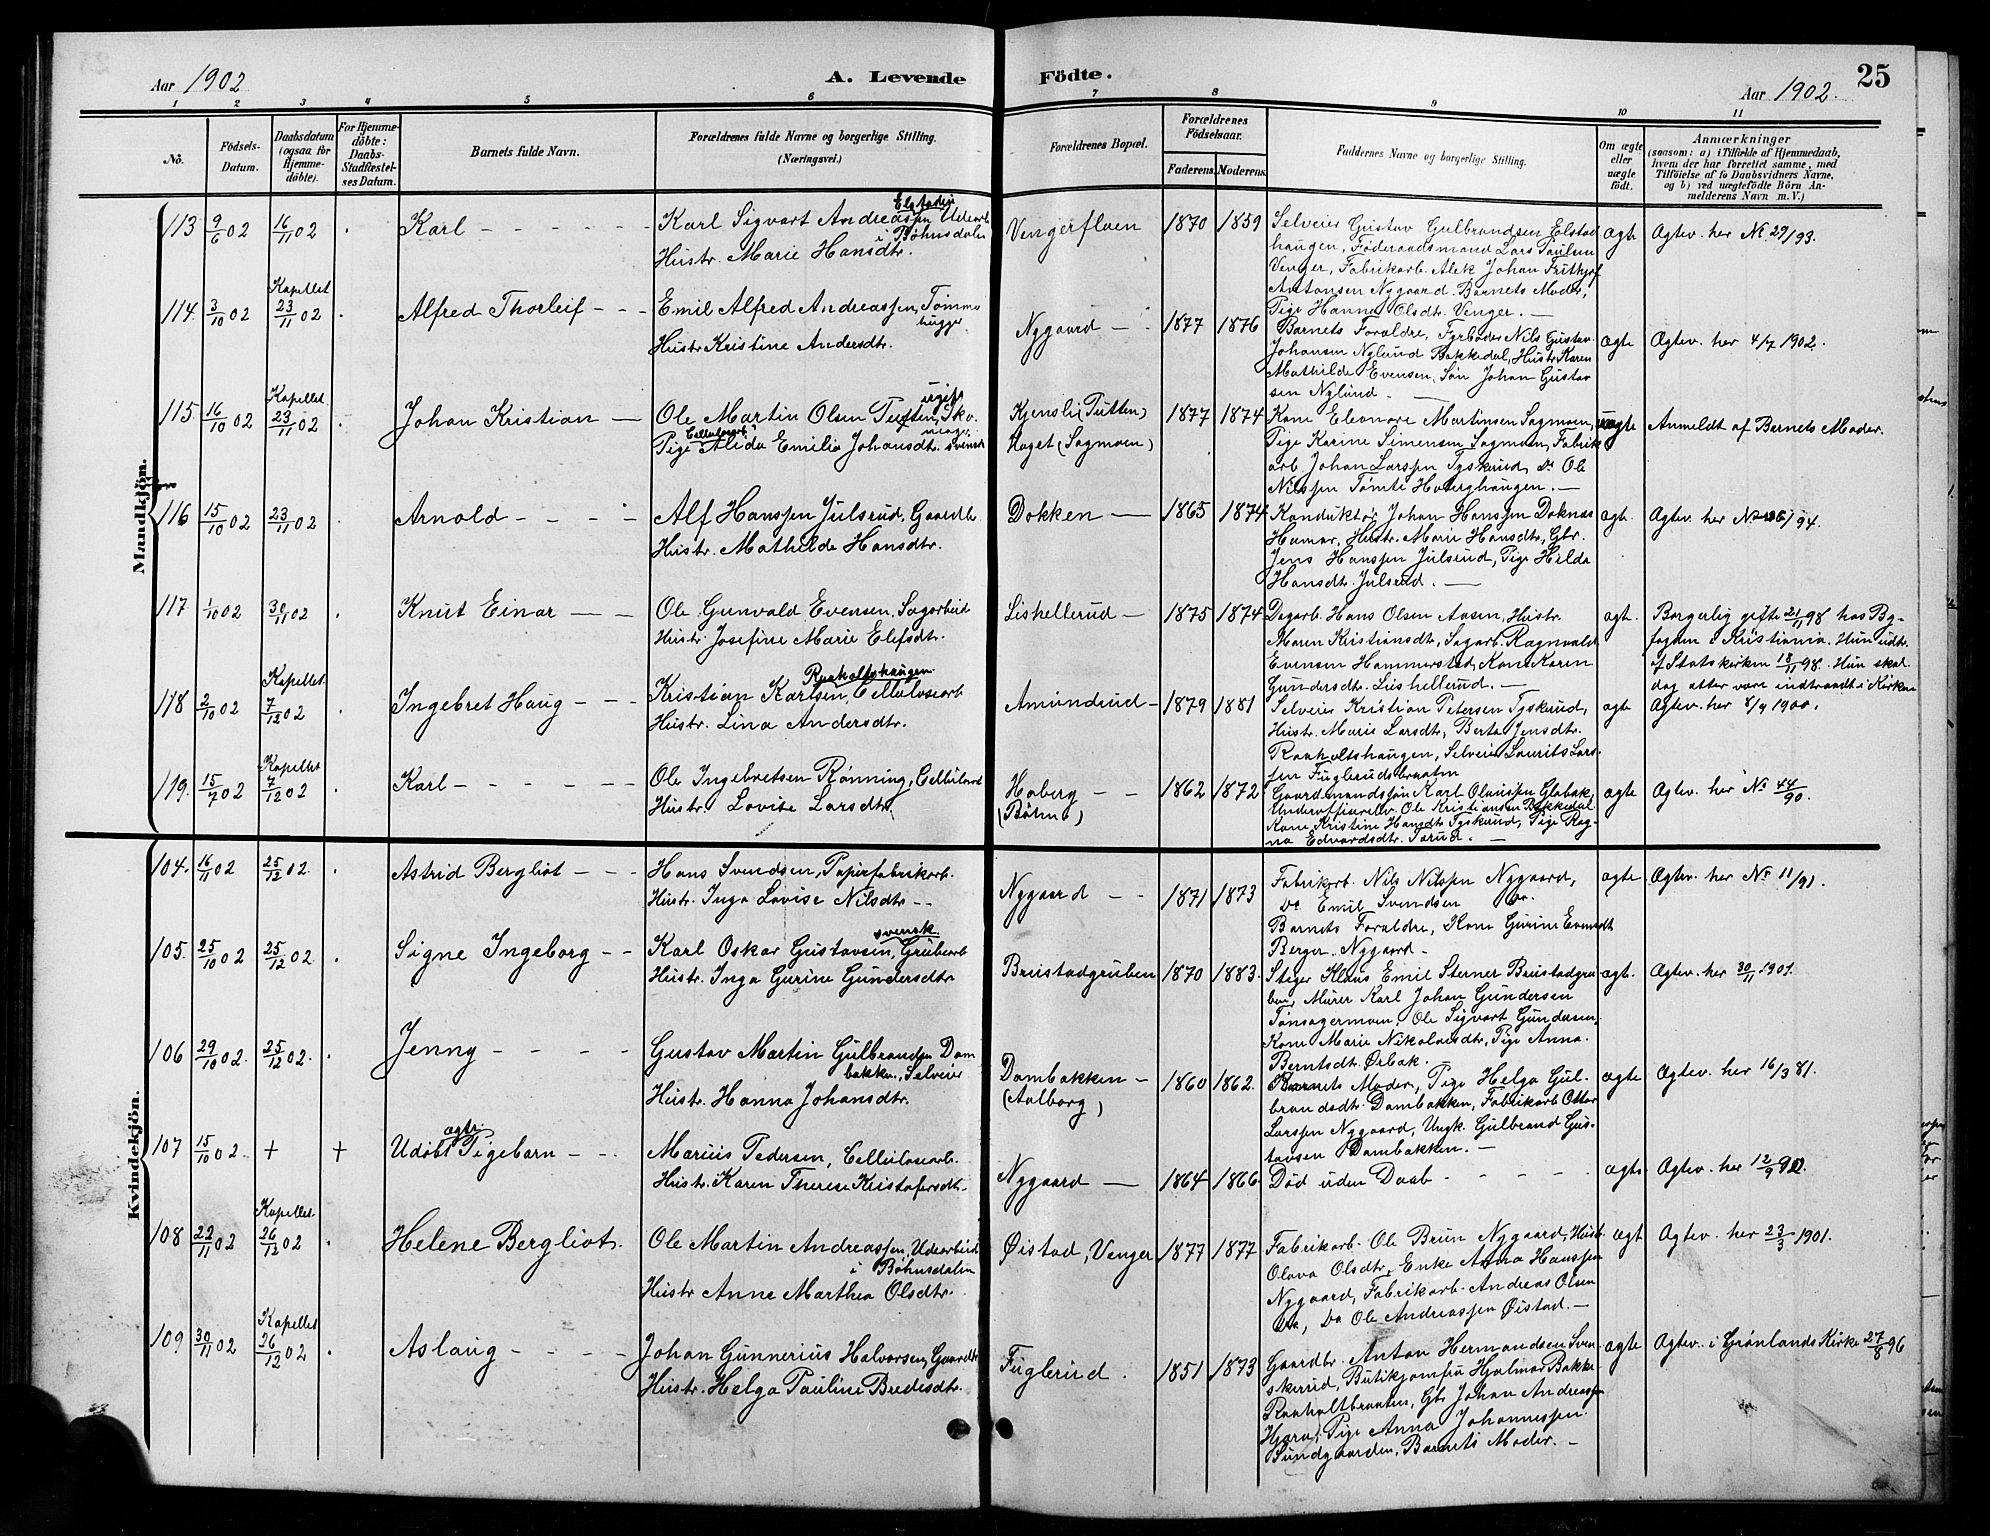 Aar 1902
A. Levende Födte.
25
Aar 1902.
1 2 3 4 5 6 7 8 9 10 11
Nô.
Födsels-Datum.
Daabsdatum (ogsaa for Hjemme-döbte).
For Hjemme-döbte: Daabs-Stadfæstel-ses Datum.
Barnets fulde Navn.
Forældrenes fulde Navne og borgerlige Stilling.
(Næringsvei.)
Forældrenes Bopæl.
Forældrenes Födselsaar.
Faderens. Moderens.
Faddernes Navne og borgerlige Stilling.
Om ægte eller uægte födt.
Anmærkninger
(saasom: a) i Tilfælde af Hjemmedaab, hvem der har forrettet samme, med Tilföielse af to Daabsvidners Navne, og b) ved uægtefödte Börn An-melderens Navn m. V.)
Mandkjön.
113 9/6 02 16/11 02 Karl
Elstadein
Karl Sigvart Andreassen Udearb.
i Bøhnsdalen
Hustr. Marie Hansdtr.
Vengerfloen 1870 1859
Selveier Gustav Gulbrandsen Elstad
haugen, Föderaadsmand Lars Paulsen
Venger, Fabrikarb. Alek Johan Frithjof
Antonsen Nygaard. Barnets Moder,
Pige Hanna Olsdtr. Venger.
ægte Ægtev. her No. 29/93.
114. 3/10 02 Kapellet 23/11 02 Alfred Thorleif
Emil Alfred Andreassen, Tømmer
hugger
Hustr. Kristine Andersdtr.
Nygaard 1877 1876
Barnets Forældre, Fyrbøder Nils Gustav
Johansen Nylund Bakkedal, Hustr. Karen
Mathilde Evensen, Søn Johan Gustav
sen Nylund.
ægte Ægtev. her 4/7 1902.
115 16/10 02 Kapellet 23/11 02 Johan Kristian
ugift
Ole Martin Olsen Tutten, Sko-
mager
Cellulosearb.
Pige Alida Emilie Johansdtr. svensk
Kjensli (Tutten)
Haget (Sagmoen)
1877 1874
Kone Eleonore Martinsen Sagmoen,
Pige Karine Simensen Sagmoen, Fabrik
arb. Johan Larssen Tyskerud, Do Ole
Nilssen Tømte Hoberghaugen.
uægte Anmeldt af Barnets Moder.
116 15/10 02 23/11 02 Arnold
Alf Hanssen Julsrud, Gaardb.
Hustr. Mathilde Hansdtr.
Dokken 1865 1874
Konduktør Johan Hanssen Doknæs
Hamar, Hustr. Marie Hansdtr, Gbr.
Jens Hanssen Julsrud, Pige Hilda
Hansdtr. Julsrud.
ægt. Ægtev. her No 36/94.
117 1/10 02 30/11 02 Knut Einar
Ole Gunvald Evensen, Sagarbeid
Hustr. Josefine Marie Elefsdtr.
Lishellerud 1875 1874
Dagarb. Hans Olsen Aasen, Hustr.
Maren Kristiansdtr, Sagarb. Ragnvald
Evensen Hammerstad, Kone Karen
Gundersdtr. Lishellerud.
ægt. Borgerlig gifte 21/11 98 hos By-
fogden i Kristiania. Hun udtr.
af Statskirken 18/11 98. Hun skal
dog atter være indtraadt i Kirken
118 2/10 02 Kapellet 7/12 02 Ingebret Haug
Raaholtshaugen.
Kristian Karlsen, Cellulosearb
Hustr. Lina Andersdtr.
Amundrud 1879 1881
Selveier Kristian Petersen Tyskerud,
Hustr. Marie Larsdtr, Berta Jensdtr.
Raaholtshaugen, Selveier Laurits Lars-
sen Fuglerudsbraaten
ægte Ægtev. her 8/4 1900.
119. 15/7 02 Kapellet 7/12 02 Karl
Ole Ingebretsen Rønning, Cellulosearb
Hustr. Lovise Larsdtr.
Hoberg
(Bøhn)
1862 1872
Gaardmandssøn Karl Olaussen Globak,
Underofficerelev Ole Kristiansen Bakkedal
Kone Kristine Hansdtr Tyskerud, Pige Rag-
na Edvardsdtr. Tørud.
ægte Ægtev. her No 44/90.
Kvindekjön.
104. 16/11 02 25/12 02 Astrid Bergliot
Hans Svendsen, Papirfabrikarb.
Hustr. Inga Lovise Nilsdtr
Nygaard 1871 1873
Fabrikarb. Nils Nilssen Nygaard,
Do Emil Svendsen Do.
Barnets Forældre, Kone Gurine Evensdt
Berger Nygaard
ægte Ægtev. her No 11/91.
105. 25/10 02 25/12 02 Signe Ingeborg
svensk.
Karl Oskar Gustavsen, Grubearb
Hustr. Inga Gurine Gundersdtr
Brustadgruben 1870 1883.
Steiger Klaus Emil Sterner Brustadgru
ben, Murer Karl Johan Gundersen
Tønsagermoen, Ole Sigvart Gundersen,
Kone Marie Nikolaisdtr, Pige Anna
Berntsdtr. Ørbak.
ægt. Ægtev. her 30/11 1901.
106 29/10 02. 25/12 02. Jenny
Gustav Martin Gulbrandsen Dam
bakken, Selveier
Hustr. Hanna Johansdtr.
Dambakken
(Aalborg)
1860 1862.
Barnets Moder, Pige Helga Gul-
brandsdtr. Dambakken, Fabrikarb Otter
Larssen Nygaard, Ungk. Gulbrand Gus-
tavsen Dambakken.
ægte Ægtev. her 16/3 81.
107 15/10 02. + + Udøbt ægte Pigebarn
Marius Pedersen, Cellulosearb.
Hustr. Karen Therese Kristofersdtr.
Nygaard 1864 1866
Død uden Daab
ægte Ægtev. her 12/9 90.
108 22/11 02 Kapellet 26/12 02 Helene Bergliot.
Ole Martin Andreassen, Udearbeid
i Bøhnsdalen
Hustr Anne Marthea Olsdtr.
Øistad, Venger 1877 1877
Fabrikarb. Ole Brun Nygaard, Hustr
Olava Olsdtr, Enke Anna Hanssen
Nygaard, Fabrikarb. Andreas Olsen
Do, Do Ole Andreassen Øistad.
ægt Ægtev. her 23/3 1901.
109 30/11 02 Kapellet 26/12 02 Aslaug
Johan Gunnerius Halvorsen, Gaardbr
Hustr. Helga Pauline Bredesdtr.
Fuglerud. 1851 1873
Gaardbr. Anton Hermandsen Sven-
skerud, Butikjomfru Hjalmar Bakke
Raaholtbraaten, Gbr Johan Andreassen
Hjera, Pige Anna Johannessen
Sundgaarden, Barnets Moder.
ægte Ægtev. i Grønlands Kirke 27/8 96